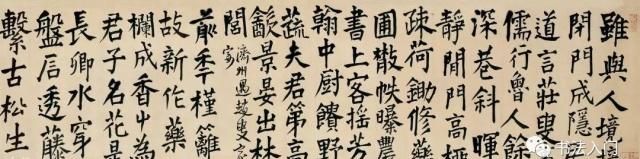 雖與人境
閉門成隱
道言莊叟
儒行魯人餘
深巷斜暉
靜閒門高
疎荷鋤修藥
圃散帙曝農
書上客搖芳
翰中厨饋野
蔬夫君第高
歡景晏出林
閭 濟州過趙叟家
前年槿籬
故新作藥
欄成香艸為
君子名花是
長卿水穿
盤石透藤
繫古松生
书法入门